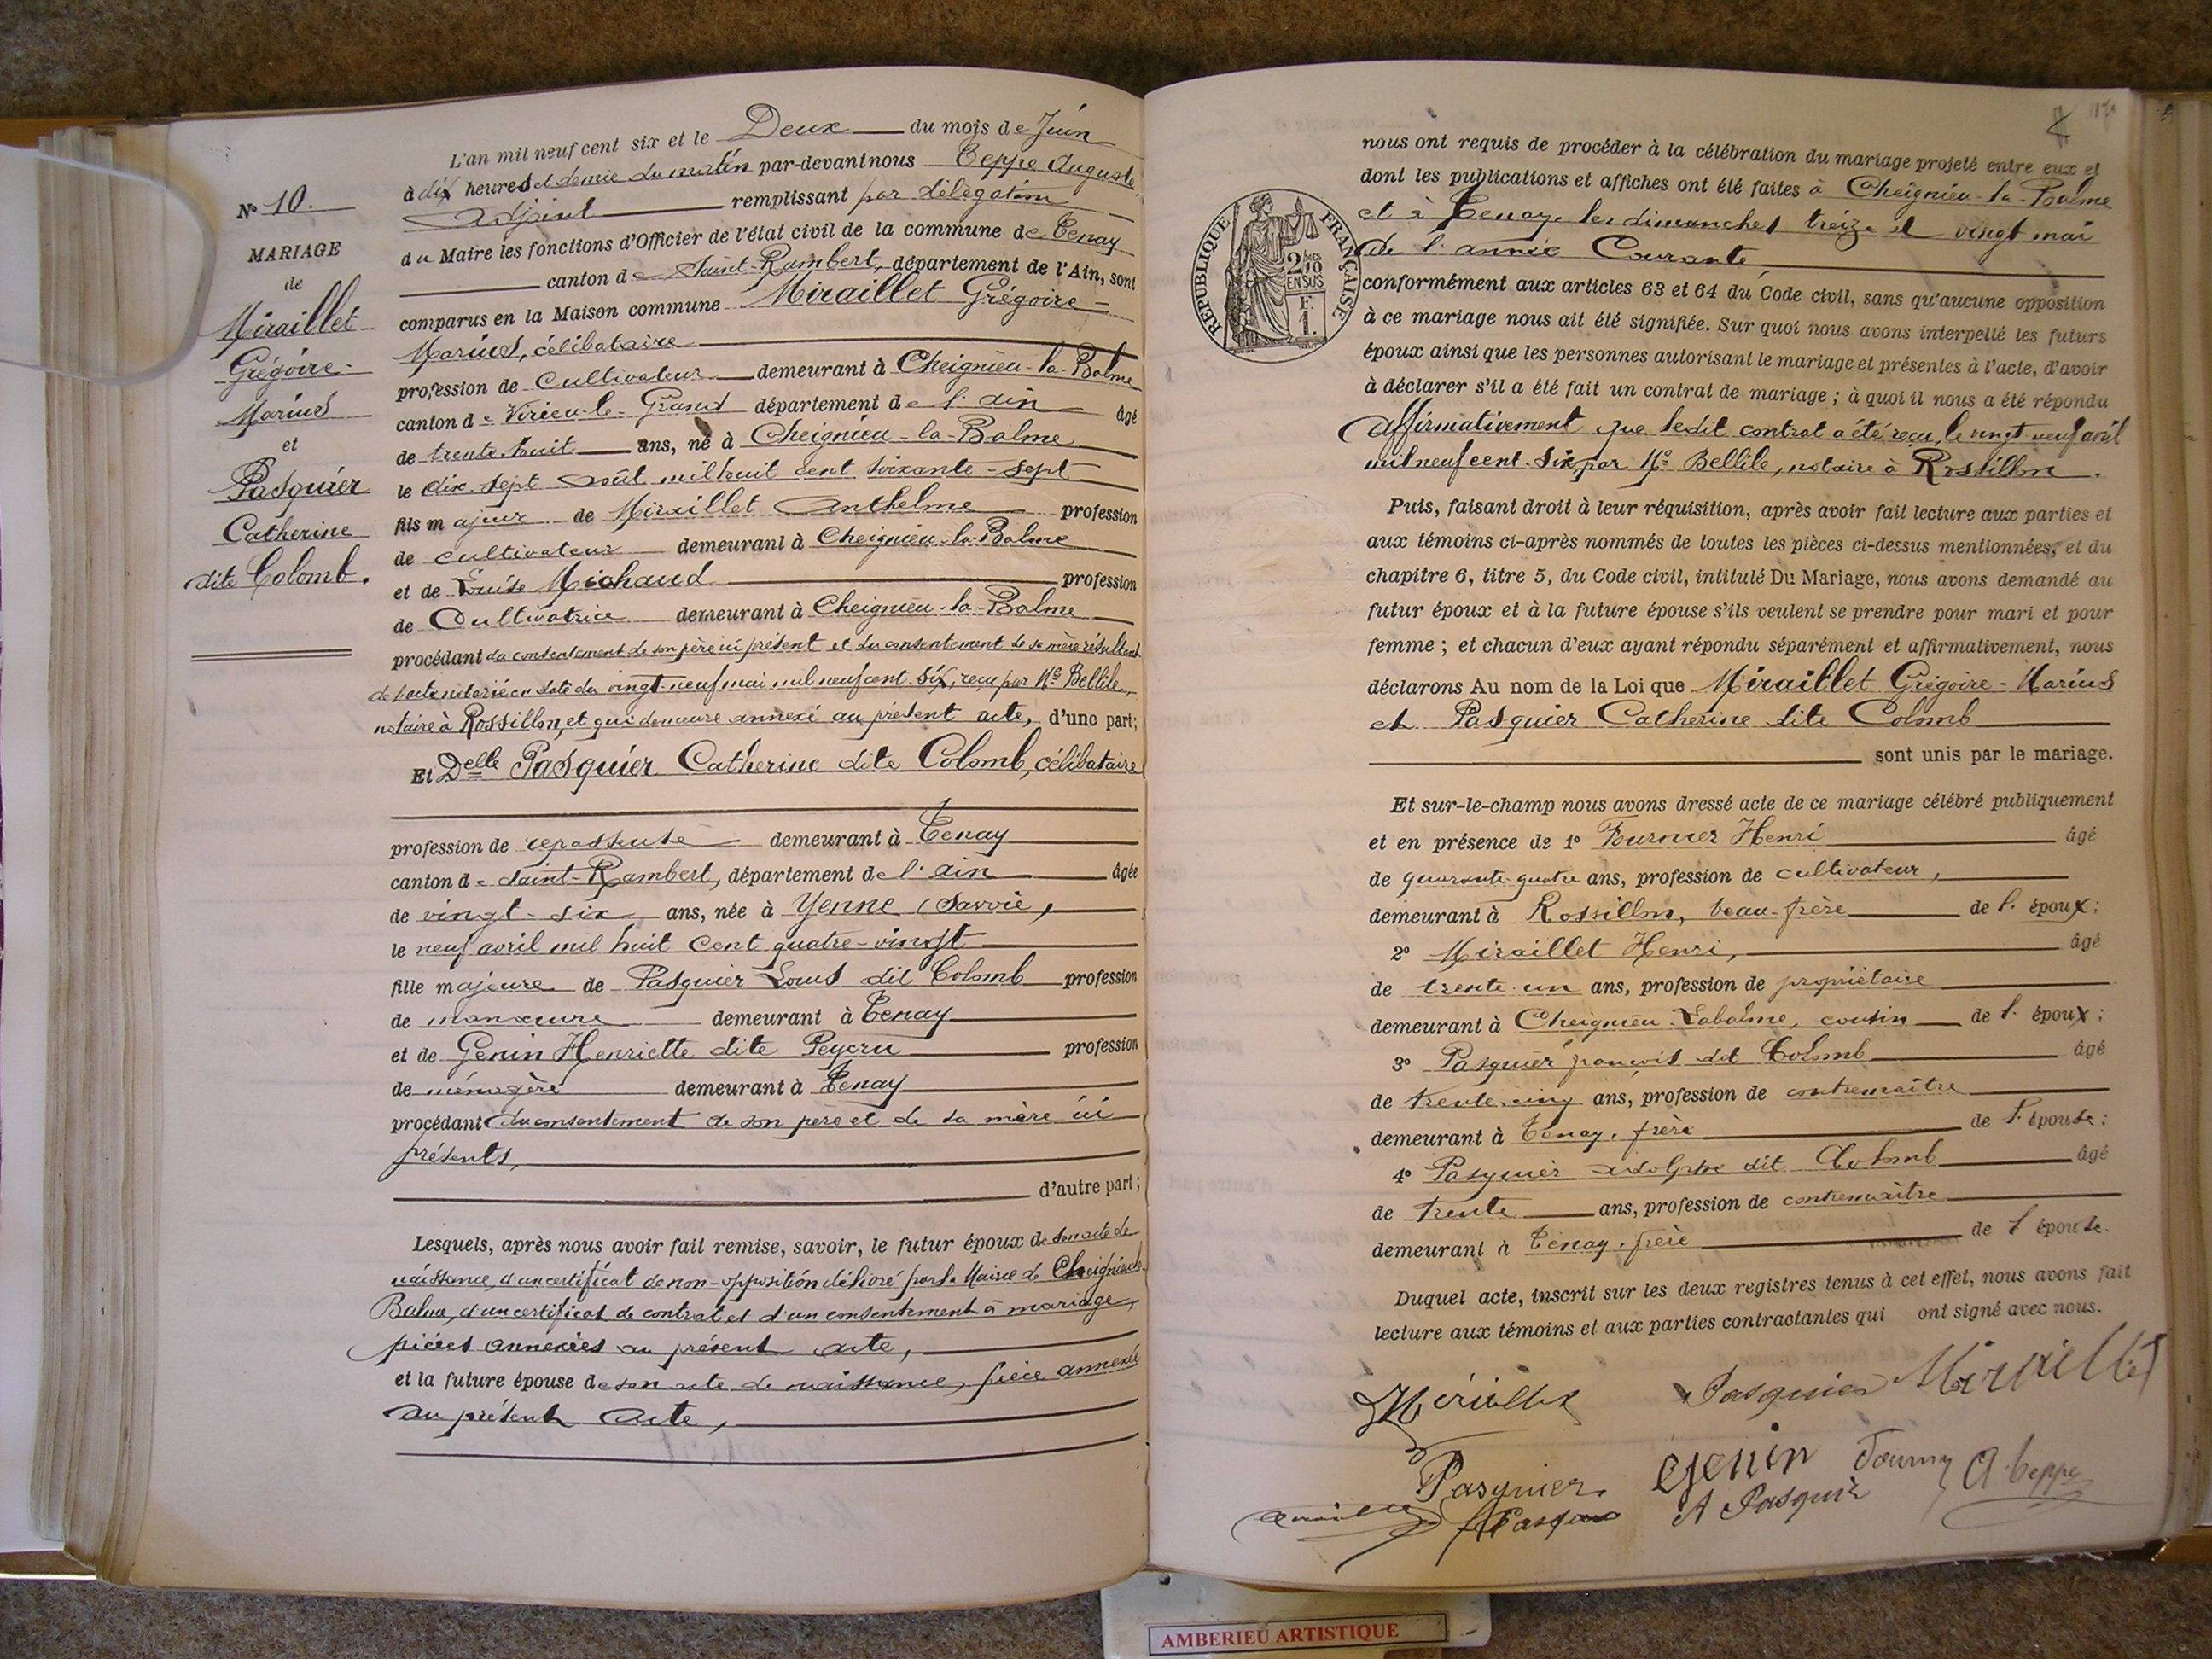 N° 10.
MARIAGE
de
Miraillet
Grégoire-
Marius
et
Pasquier
Catherine
dite Colomb.
L'an mil neuf cent six et le Deux du mois de Juin
à dix heures et demie du matin par-devant nous Teppe Auguste,
Adjoint remplissant par délégation
du Maire les fonctions d'Officier de l'état civil de la commune de Tenay
canton de Saint-Rambert, département de l'Ain, sont
comparus en la Maison commune Miraillet Grégoire-
Marius, célibataire
profession de Cultivateur demeurant à Cheignieu-la-Balme
canton de Virieu-le-Grand département de l'ain âgé
de trente huit ans, né à Cheignieu-la-Balme
le dix-sept août mil huit cent soixante-sept
fils majeur de Miraillet Anthelme profession
de cultivateur demeurant à Cheignieu-la-Balme
et de Louise Michaud profession
de Cultivatrice demeurant à Cheignieu-la-Balme
procédant du consentement de son père ici présent et du consentement de sa mère résultant
de l'acte notarié en date du vingt-neuf mai mil neuf cent-six, reçu par Me Bellile,
notaire à Rossillon, et qui demeure annexé au présent acte, d'une part;
Et Delle Pasquier Catherine dite Colomb, célibataire
profession de repasseuse demeurant à Tenay
canton de Saint-Rambert, département de l'ain âgée
de vingt-six ans, née à Yenne (Savoie),
le neuf avril mil huit cent quatre-vingt
fille majeure de Pasquier Louis dit Colomb profession
de manœuvre demeurant à Tenay
et de Genin Henriette dite Peycru profession
de ménagère demeurant à Tenay
procédant du consentement de son père et de sa mère ici
présents,
d'autre part;
Lesquels, après nous avoir fait remise, savoir, le futur époux de son acte de
naissance, d'un certificat de non-opposition délivré par la Mairie de Cheignieu-la-
Balme, d'un certificat de contrat et d'un consentement à mariage,
pièces annexées au présent acte,
et la future épouse de son acte de naissance, pièce annexée
au présent acte,
RÉPUBLIQUE FRANÇAISE
2/10 EN SUS
F.
1.
nous ont requis de procéder à la célébration du mariage projeté entre eux et
dont les publications et affiches ont été faites à Cheignieu-la-Balme
et à Tenay, les dimanches treize et vingt mai
de l'année Courante
conformément aux articles 63 et 64 du Code civil, sans qu'aucune opposition
à ce mariage nous ait été signifiée. Sur quoi nous avons interpellé les futurs
époux ainsi que les personnes autorisant le mariage et présentes à l'acte, d'avoir
à déclarer s'il a été fait un contrat de mariage; à quoi il nous a été répondu
Affirmativement que ledit contrat a été reçu, le vingt-neuf avril
mil neuf cent-six par Me Bellile, notaire à Rossillon.
Puis, faisant droit à leur réquisition, après avoir fait lecture aux parties et
aux témoins ci-après nommés de toutes les pièces ci-dessus mentionnées, et du
chapitre 6, titre 5, du Code civil, intitulé Du Mariage, nous avons demandé au
futur époux et à la future épouse s'ils veulent se prendre pour mari et pour
femme; et chacun d'eux ayant répondu séparément et affirmativement, nous
déclarons Au nom de la Loi que Miraillet Grégoire-Marius
et Pasquier Catherine dite Colomb
sont unis par le mariage.
Et sur-le-champ nous avons dressé acte de ce mariage célébré publiquement
et en présence de 1° Fournier Henri âgé
de quarante-quatre ans, profession de cultivateur,
demeurant à Rossillon, beau-frère de l'époux;
2° Miraillet Henri, âgé
de trente-un ans, profession de propriétaire
demeurant à Cheignieu-Labalme, cousin de l'époux;
3° Pasquier françois dit Colomb âgé
de trente-cinq ans, profession de contremaître
demeurant à Tenay, frère de l'épouse;
4° Pasquier adolphe dit Colomb âgé
de trente ans, profession de contremaître
demeurant à Tenay, frère de l'épouse.
Duquel acte, inscrit sur les deux registres tenus à cet effet, nous avons fait
lecture aux témoins et aux parties contractantes qui ont signé avec nous.
Miraillet Pasquier Miraillet
Pasquier Genin A. Teppe
A Pasquier
AMBERIEU ARTISTIQUE